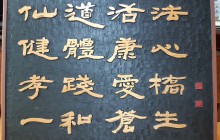 仙道活法
健體康心
孝踐愛橋
一和蒼生